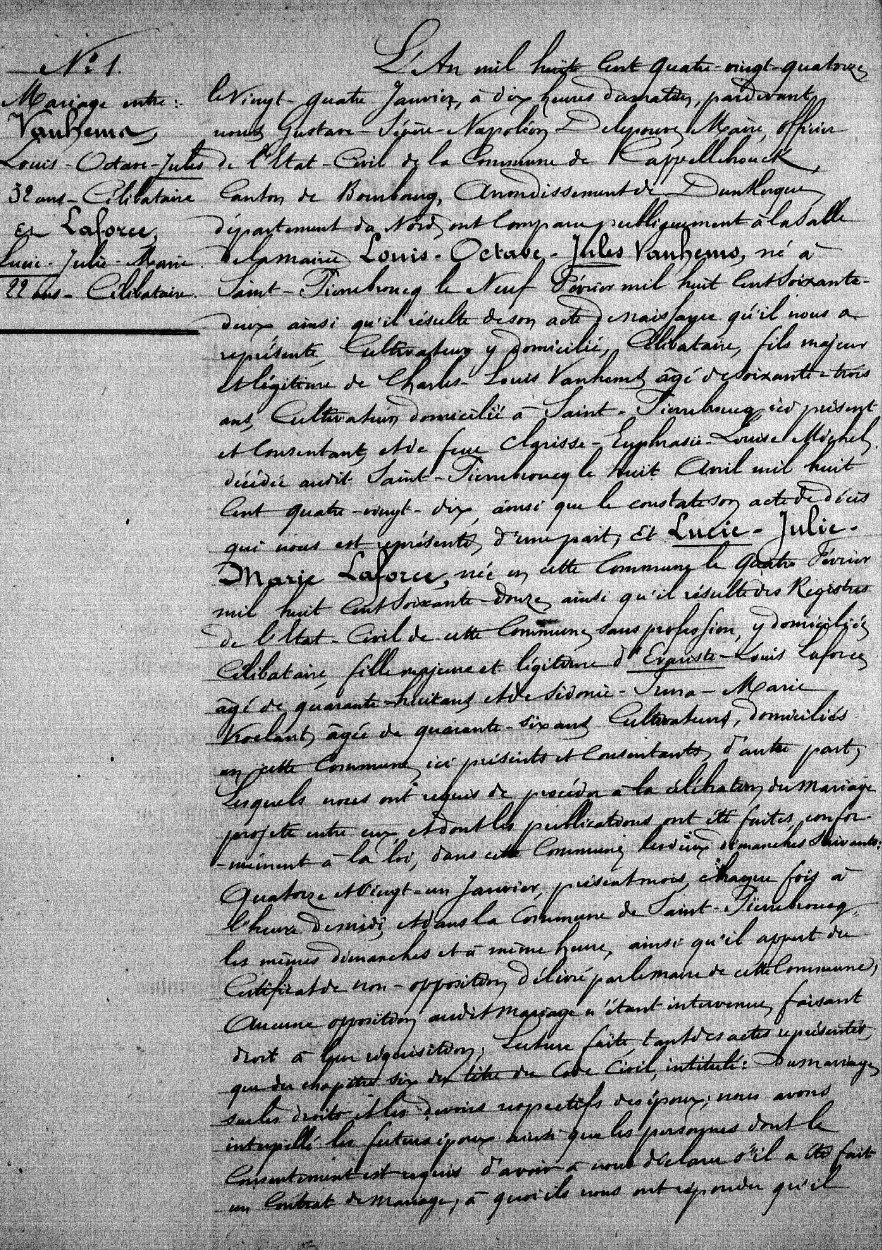 N° 1.
Mariage entre :
Vanhems,
Louis-Octave-Jules
32 ans - Célibataire
et Laforce,
Lucie-Julie-Marie
22 ans - Célibataire.
L'An mil huit cent quatre-vingt-quatorze,
le Vingt-quatre Janvier, à dix heures du matin, pardevant
nous Gustave- -Napoléon Delepouve, Maire, officier
de l'Etat-Civil de la Commune de Kappellebrouck,
Canton de Bourbourg, Arrondissement de Dunkerque,
département du Nord, ont comparu publiquement à la salle
de la mairie, Louis-Octave-Jules Vanhems, né à
Saint-Pierrebroucq le Neuf Février mil huit cent soixante-
deux ainsi qu'il résulte de son acte de naissance qu'il nous a
représenté, Cultivateur, y domicilié, Célibataire, fils majeur
et légitime de Charles-Louis Vanhems, âgé de soixante-trois
ans, Cultivateur, domicilié à Saint-Pierrebroucq, ici présent
et consentant, et de feue Clarisse-Euphrasie-Louise Michel,
décédée audit Saint-Pierrebroucq le huit Avril mil huit
cent quatre-vingt-dix, ainsi que le constate son acte de décès
qui nous est représenté, d'une part, Et Lucie-Julie-
Marie Laforce, née en cette Commune le Quatre Février
mil huit cent soixante-douze ainsi qu'il résulte des Registres
de l'Etat-Civil de cette Commune, sans profession, y domiciliée,
Célibataire, fille majeure et légitime d'Evariste-Louis Laforce,
âgé de quarante-huit ans et de Sidonie- -Marie
âgée de quarante-six ans, Cultivateurs, domiciliés
en cette Commune, ici présents et consentants, d'autre part;
Lesquels nous ont requis de procéder à la célébration du mariage
projeté entre eux et dont les publications ont été faites confor-
-mément à la loi, dans cette Commune, les deux dimanches suivants:
Quatorze et Vingt-un Janvier, présent mois, chaque fois à
l'heure de midi, et dans la Commune de Saint-Pierrebroucq,
les mêmes dimanches et à même heure, ainsi qu'il appert du
Certificat de non-opposition délivré par le maire de cette Commune;
Aucune opposition audit mariage n'étant intervenue, faisant
droit à leur réquisition; Lecture faite tant des actes représentés,
que du chapitre six du titre du Code Civil, intitulé: Du mariage,
sur les droits et les devoirs respectifs des époux; nous avons
interpellé les futurs époux ainsi que les personnes dont le
consentement est requis d'avoir à nous déclarer s'il a été fait
un Contrat de Mariage; à quoi ils nous ont répondu qu'il